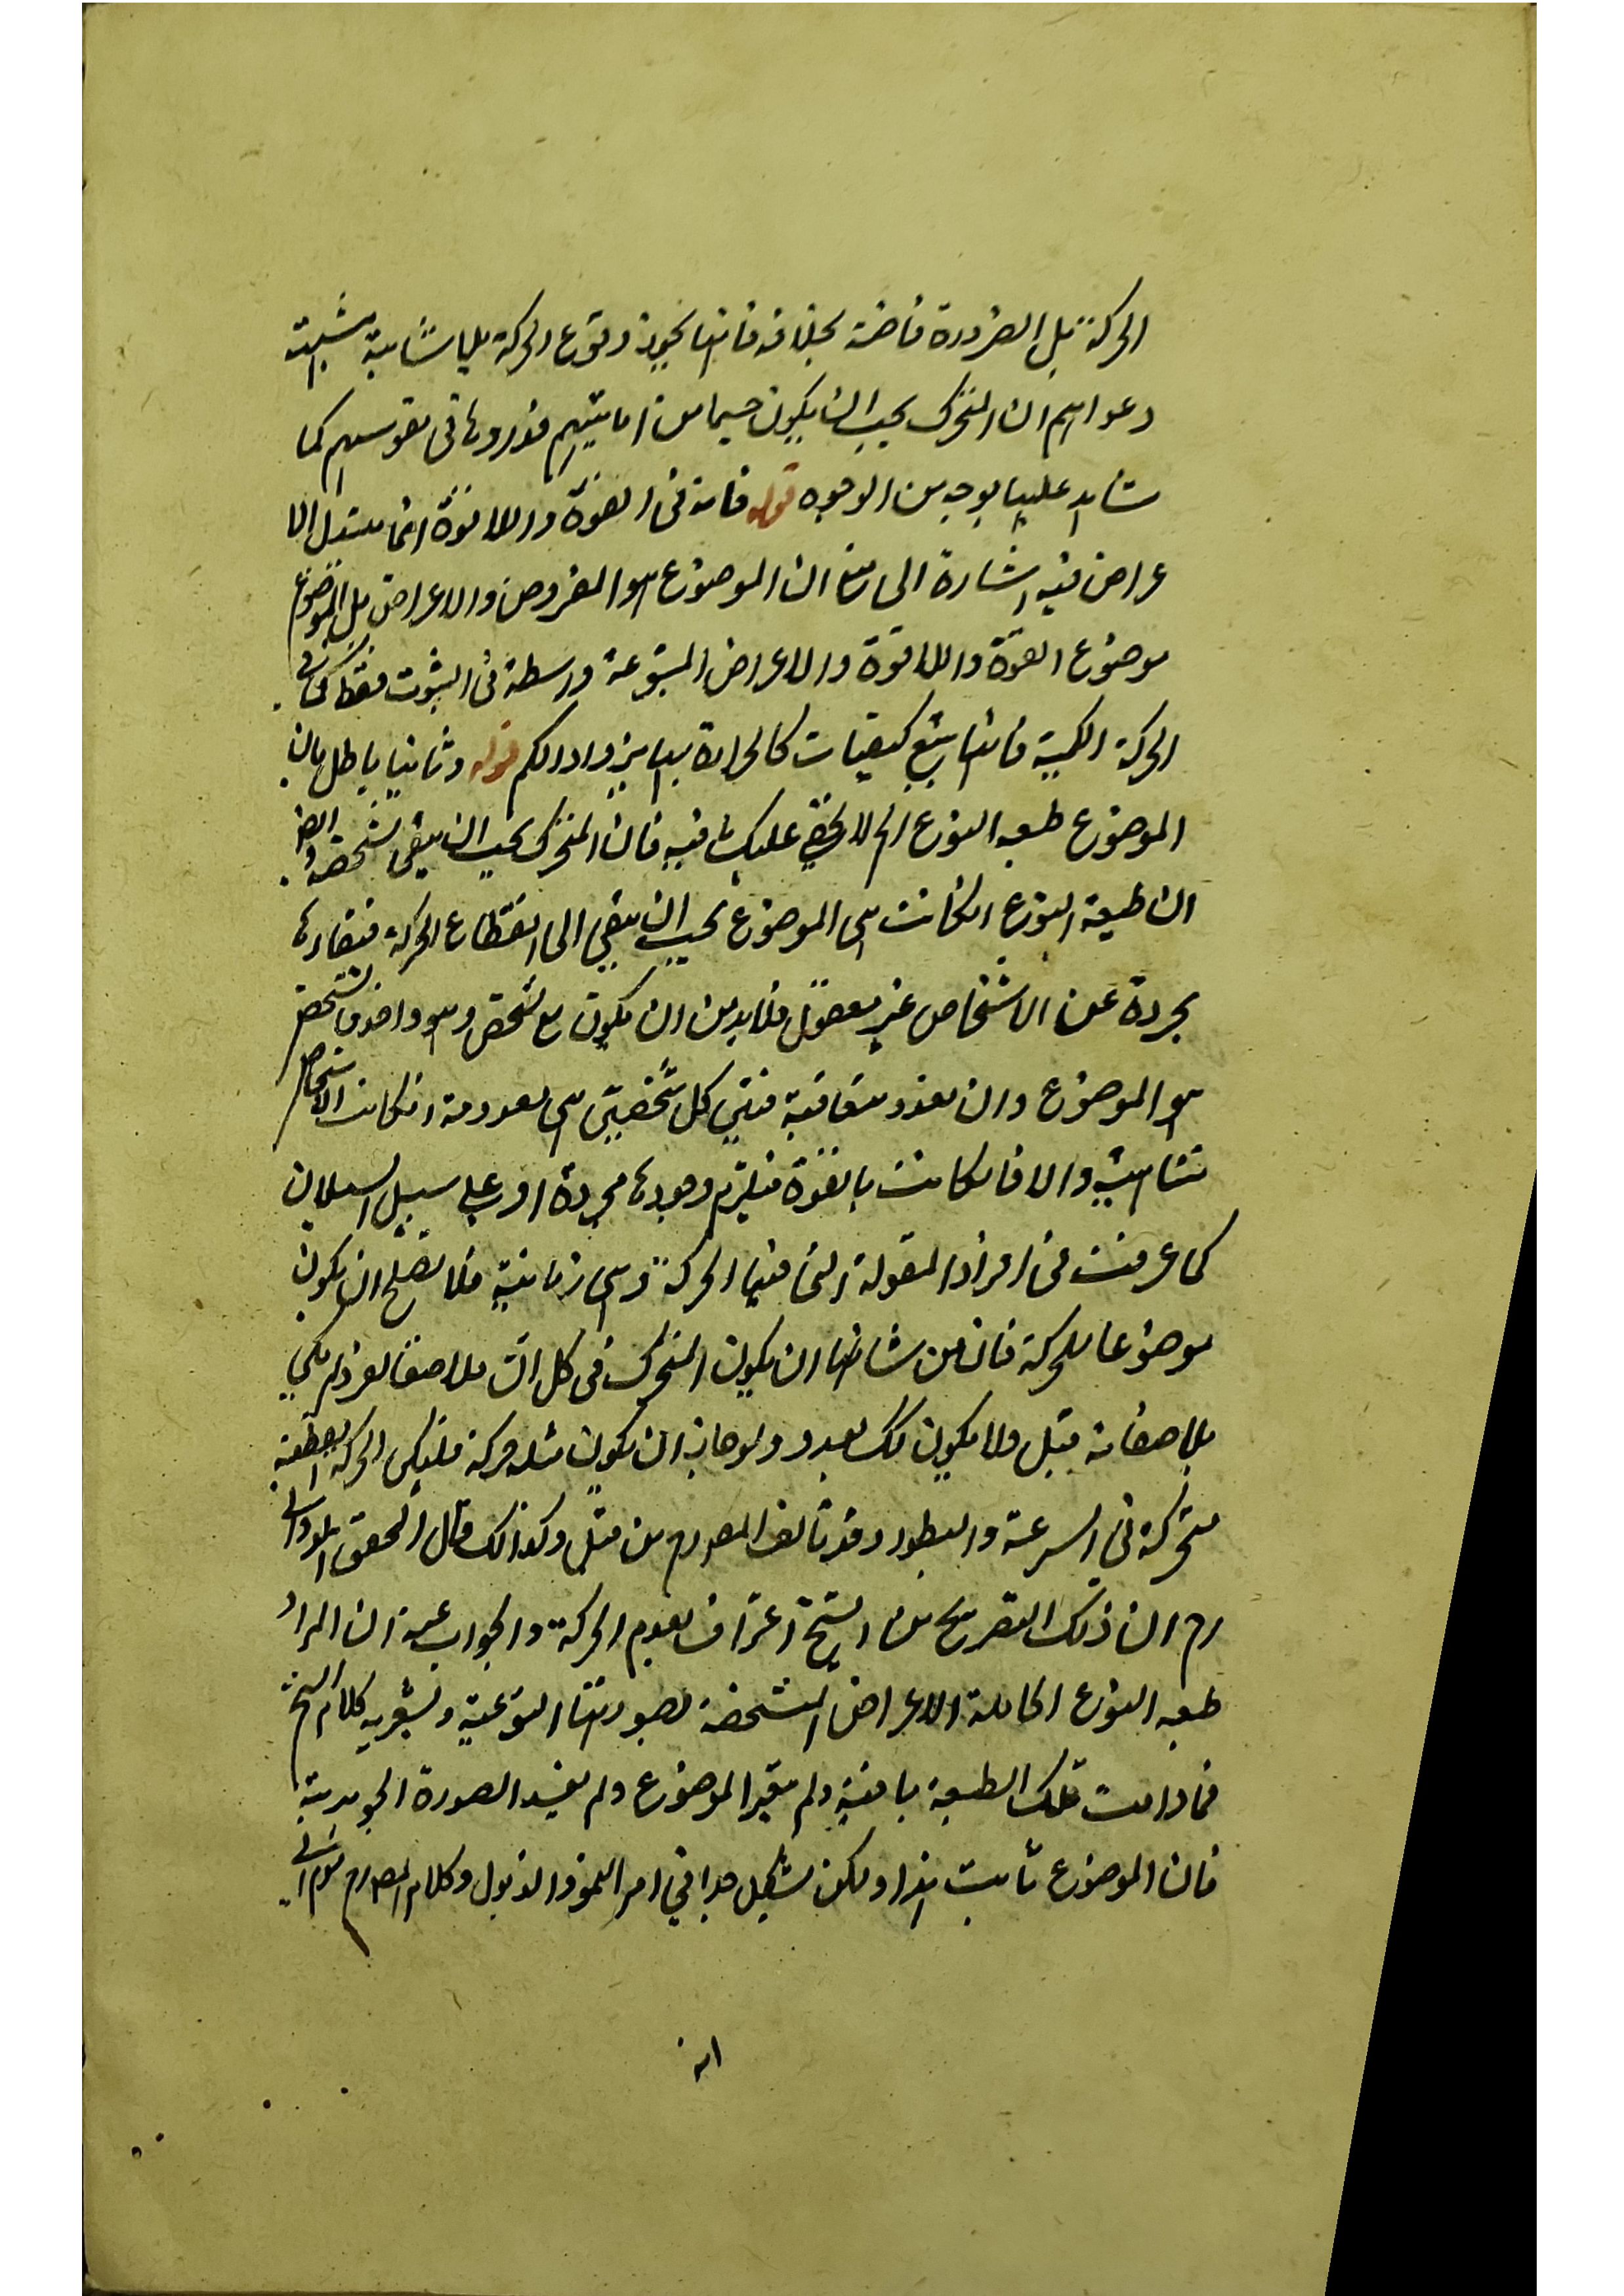 الحركة بل الضرورة قاضية بخلافه فانها تجوز وقوع الحركة بلا شائبة
دعواهم ان المتحرك يجب ان يكون جسما من امانيهم فردوها في نفوسهم كما
شاهد عليها بوجه من الوجوه قوله فانه في القوة واللاقوة انما يتبدل الا
عراض فيه اشارة الى ان الموضوع هو المفروض والاعراض بل الموضوع
موضوع القوة واللاقوة والاعراض المتبوعة واسطة في الثبوت فقط كما في
الحركة الكمية فانها يتبع كيفيات كالحرارة بها يزداد الكم قوله وثانيا باطل بان
الموضوع طبيعة النوع الخ لا يخفى عليك ما فيه فان المتحرك يجب ان يبقى بشخصه وايضا
ان طبيعة النوع انكانت هي الموضوع يجب ان يبقى الى انقطاع الحركة فبقاءها
مجردة عن الاشخاص غير معقول فلابد من ان يكون مع شخص وهو واحد فالشخص
هو الموضوع وان تعدد متعاقبة فبين كل شخصين هي معدومة انكانت الاشخاص
متناهية والا فانكانت بالقوة فيلزم وجودها مجردة او على سبيل السيلان
كما عرفت في افراد المقولة التي فيها الحركة وهي زمانية فلا تصلح ان يكون
موضوعا للحركة فان من شانها ان يكون المتحرك في كل ان ملاصقا لفرد لم يكن
ملاصقا به قبل ولا يكون لك بعد ولو جاز ان يكون مثله حركة فليكن الحركة القطعية
متحركة في السرعة والبطوء وقد تالف المص رح من قبل وكذلك قال المحقق الدواني
رح ان ذلك التصريح من الشيخ اعتراف بعدم الحركة والجواب عنه ان المراد
طبيعة النوع الحاملة الاعراض المتشخصة بصورتها النوعية ويشعر به كلام الشيخ
فما دامت تلك الطبيعة باقية ولم يتغير الموضوع ولم يفسد الصورة الجوهرية
فان الموضوع ثابت هذا ولكن يشكل جدا في امر النمو والذبول وكلام المص رح